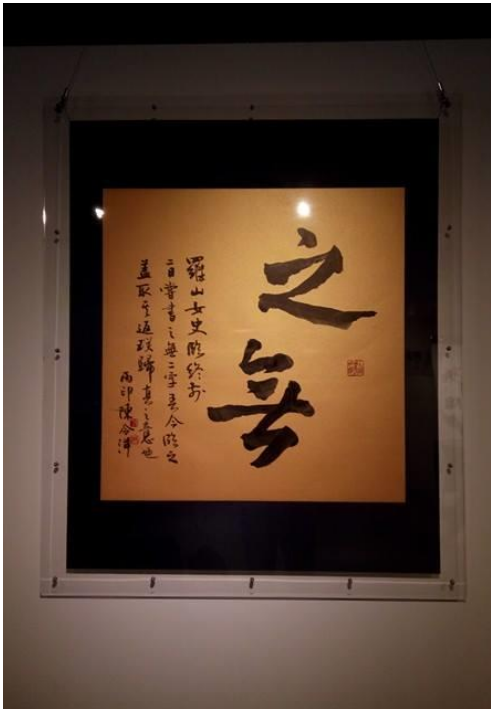 之無
羅山女史臨終前
二日嘗書之無二字吾今臨之
蓋取其返璞歸真之意也
丙申陳令洋